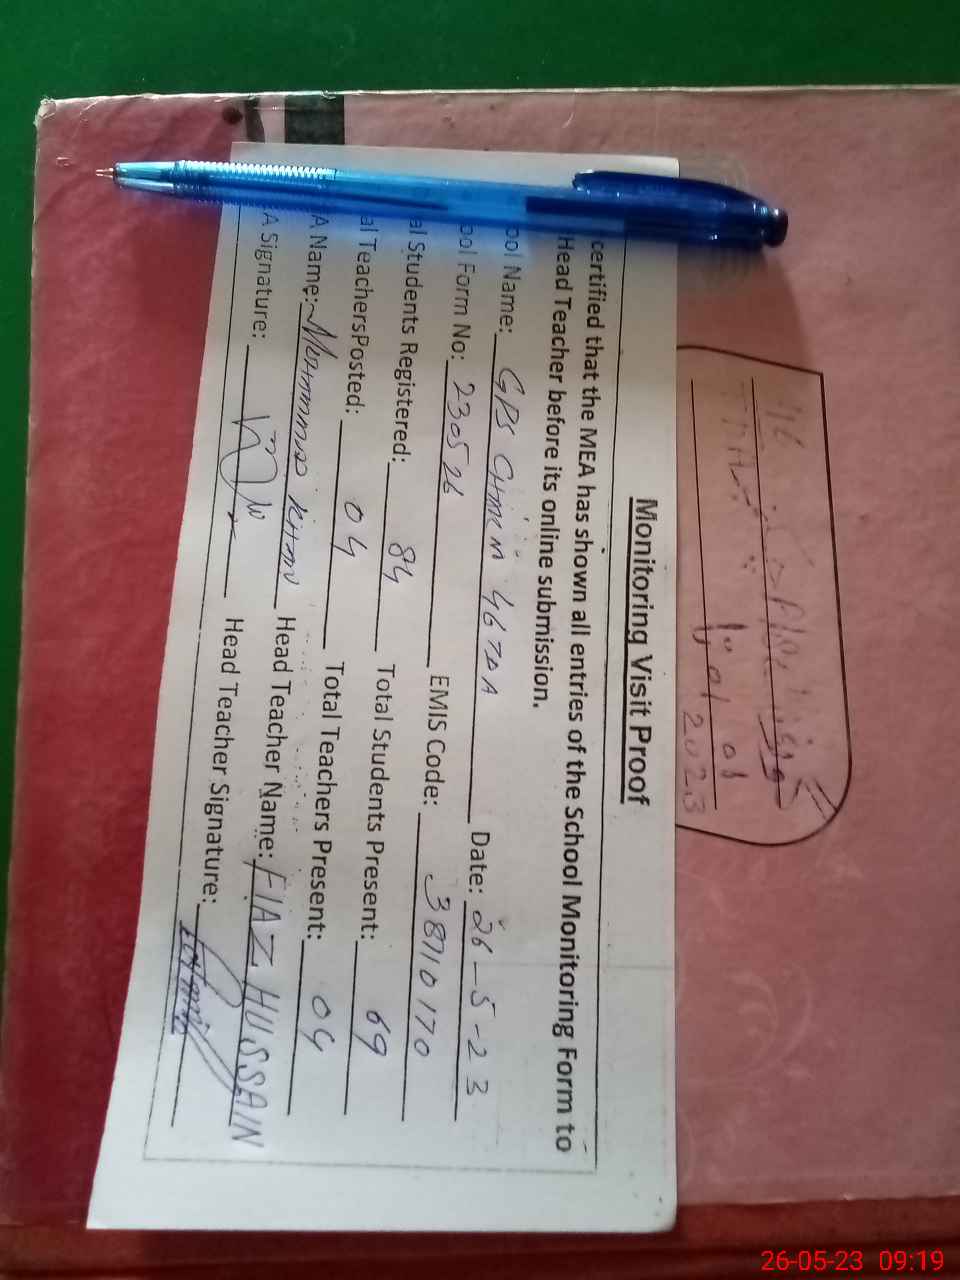 Monitoring Visit Proof
certified that the MEA has shown all entries of the School Monitoring Form to
Head Teacher before its online submission.
ool Name: GPS CHACK 46 TDA Date: 26-5-23
ool Form No: 230526 EMIS Code: 38710170
al Students Registered: 84 Total Students Present: 69
al TeachersPosted: 04 Total Teachers Present: 04
A Name: Muhammad Khan Head Teacher Name: FIAZ HUSSAIN
A Signature: Head Teacher Signature:
2023
26-05-23 09:19